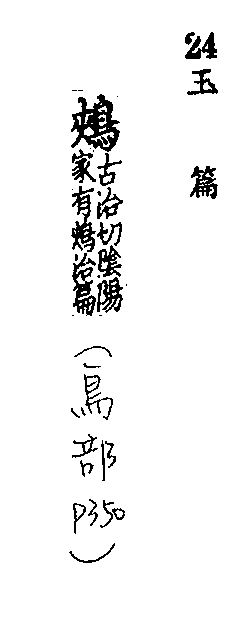 24 玉篇
鵊
古洽切陰陽
家有鵊治篇
（鳥部 p350）